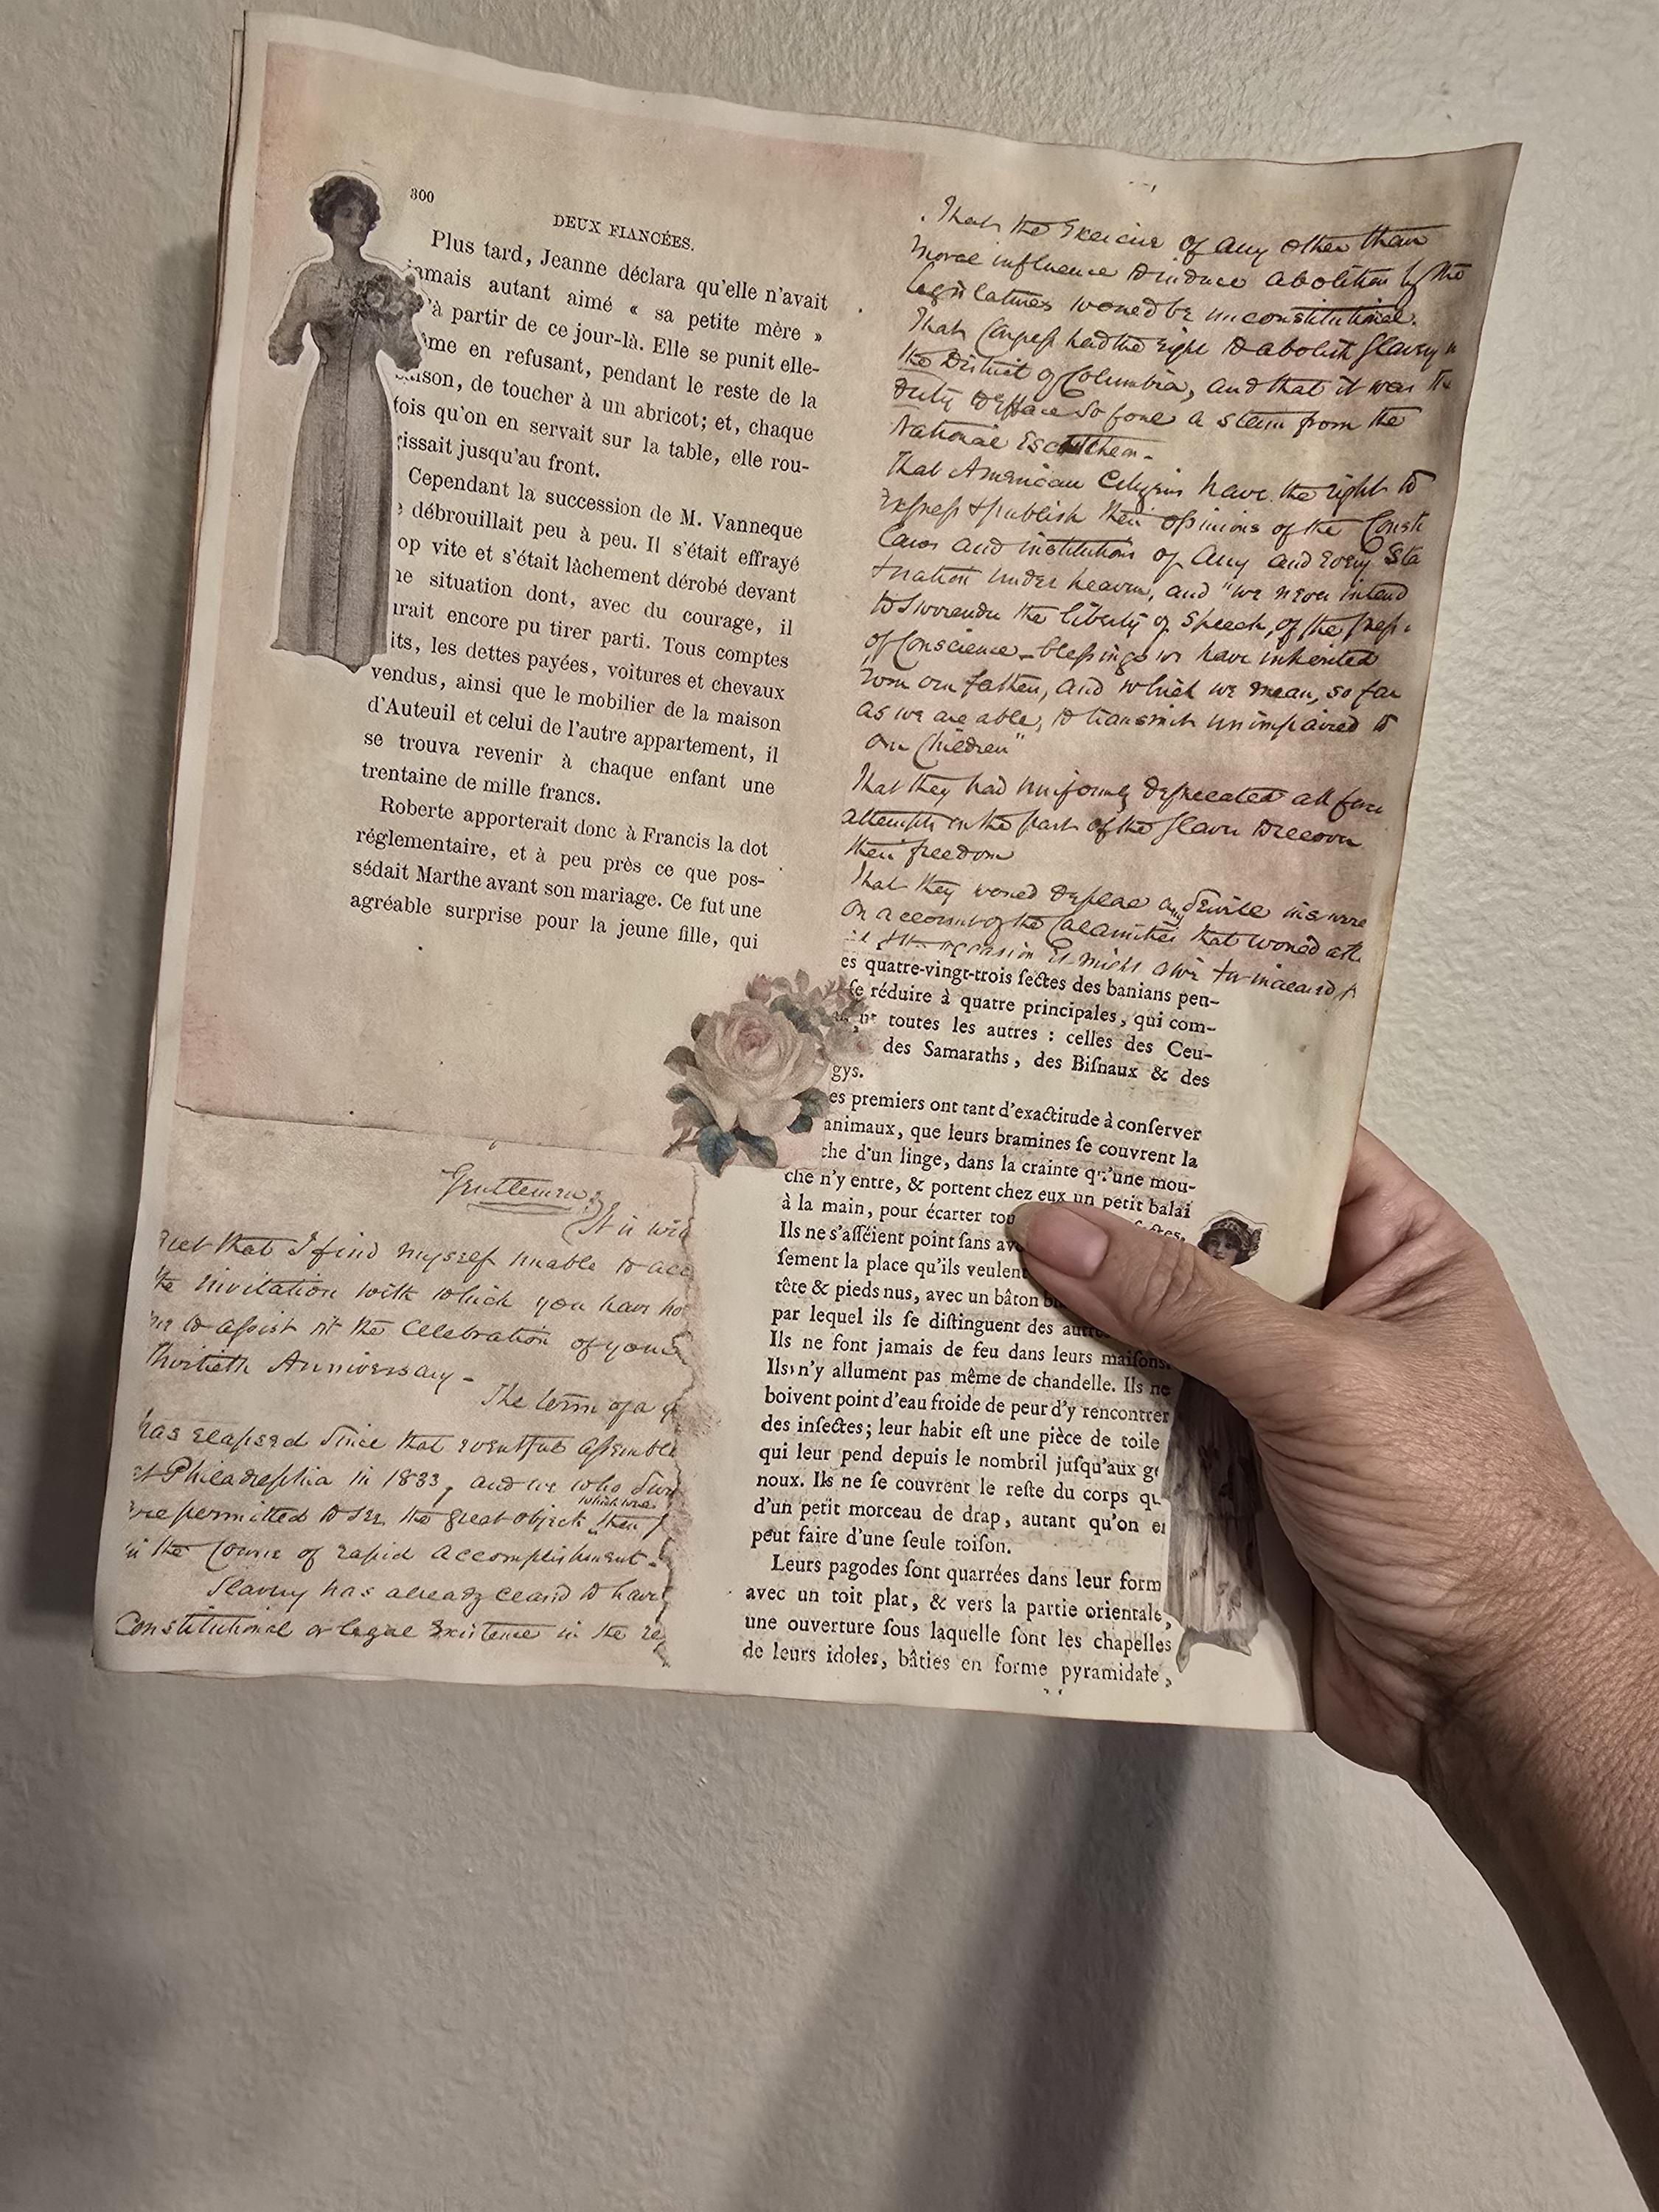 300
DEUX FIANCÉES.
Plus tard, Jeanne déclara qu'elle n'avait
jamais autant aimé « sa petite mère »
'à partir de ce jour-là. Elle se punit elle-
ême en refusant, pendant le reste de la
aison, de toucher à un abricot; et, chaque
fois qu'on en servait sur la table, elle rou-
gissait jusqu'au front.
Cependant la succession de M. Vanneque
débrouillait peu à peu. Il s'était effrayé
op vite et s'était lâchement dérobé devant
ne situation dont, avec du courage, il
urait encore pu tirer parti. Tous comptes
its, les dettes payées, voitures et chevaux
vendus, ainsi que le mobilier de la maison
d'Auteuil et celui de l'autre appartement, il
se trouva revenir à chaque enfant une
trentaine de mille francs.
Roberte apporterait donc à Francis la dot
réglementaire, et à peu près ce que pos-
sédait Marthe avant son mariage. Ce fut une
agréable surprise pour la jeune fille, qui
Gentlemen,
It is with
ret that I find myself unable to acc
the invitation with which you have ho
me to assist at the celebration of your
thirtieth Anniversary -
The term of a g
has elapsed since that eventful assembl
at Philadelphia in 1833, and we who sur
are permitted to see the great object which was then
in the course of rapid accomplishment.
Slavery has already ceased to have
Constitutional or legal existence in the re
That the exercise of any other than
moral influence to induce abolition by the
legislatures would be unconstitutional.
That Congress had the right to abolish slavery in
the District of Columbia, and that it was the
duty to efface so foul a stain from the
National Escutcheon -
That American Citizens have the right to
express & publish their opinions of the Consti
Laws and institutions of any and every Sta
& nation under heaven, and "we never intend
to surrender the liberty of speech, of the press,
of Conscience - blessings we have inherited
from our fathers, and which we mean, so far
as we are able, to transmit unimpaired to
our Children"
That they had uniformly deprecated all forci
attempts on the part of the slaves to recover
their freedom
That they would deplore any servile insurre
on account of the calamities that would atte
occasion it might give to increased
es quatre-vingt-trois ſectes des banians peu-
ſe réduire à quatre principales, qui com-
toutes les autres : celles des Ceu-
des Samaraths, des Biſnaux & des
gys.
es premiers ont tant d'exactitude à conſerver
animaux, que leurs bramines ſe couvrent la
che d'un linge, dans la crainte qu'une mou-
che n'y entre, & portent chez eux un petit balai
à la main, pour écarter tou ſectes.
Ils ne s'aſſéient point ſans av
ſement la place qu'ils veulent
tête & pieds nus, avec un bâton bl
par lequel ils ſe diſtinguent des autres
Ils ne font jamais de feu dans leurs maiſons.
Ils n'y allument pas même de chandelle. Ils ne
boivent point d'eau froide de peur d'y rencontrer
des inſectes; leur habit eſt une pièce de toile
qui leur pend depuis le nombril juſqu'aux ge
noux. Ils ne ſe couvrent le reſte du corps qu
d'un petit morceau de drap, autant qu'on en
peut faire d'une ſeule toiſon.
Leurs pagodes ſont quarrées dans leur form
avec un toit plat, & vers la partie orientale,
une ouverture ſous laquelle ſont les chapelles
de leurs idoles, bâties en forme pyramidale,